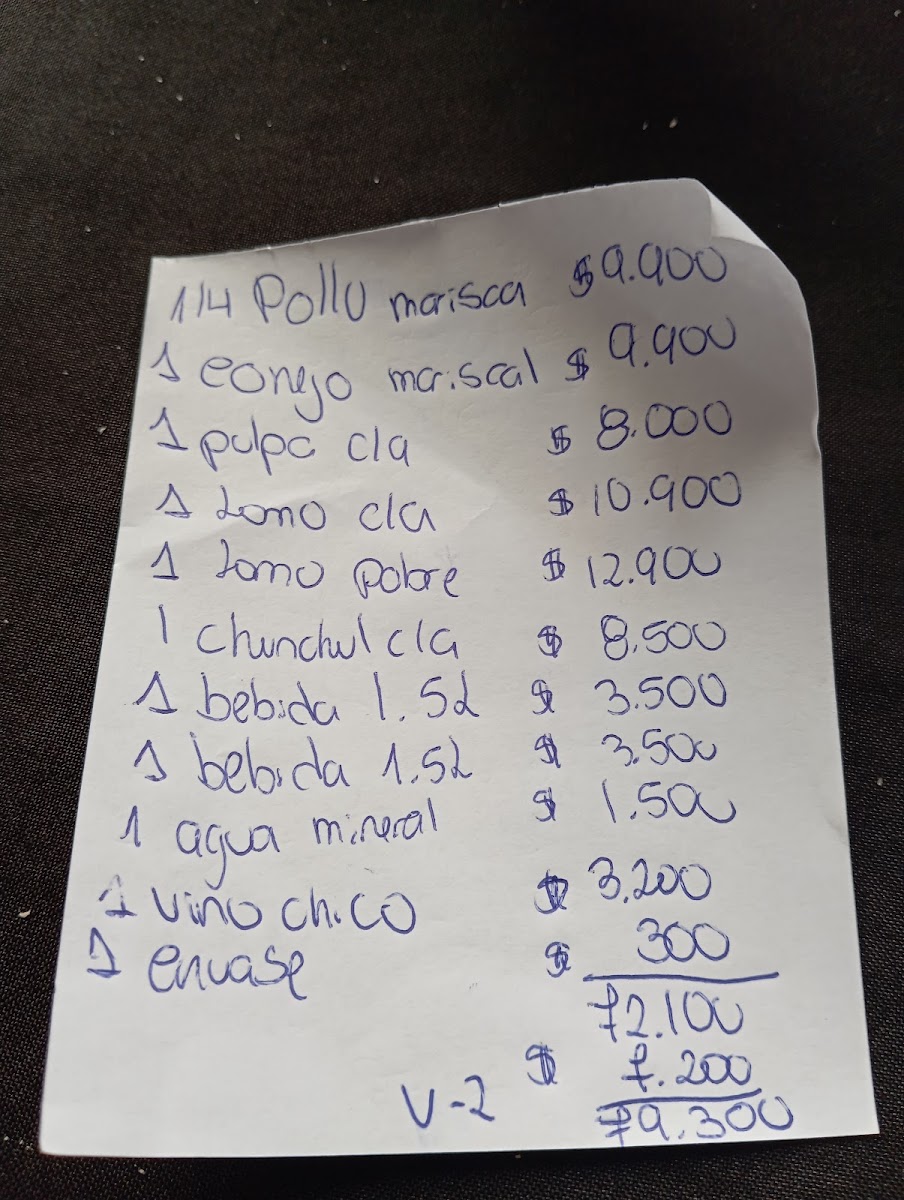 1/4 Pollo marisca $9.900
1 conejo mariscal $ 9.900
1 pulpa c/a $ 8.000
1 Lomo c/a $ 10.900
1 Lomo pobre $ 12.900
1 chunchul c/a $ 8.500
1 bebida 1.5L $ 3.500
1 bebida 1.5L $ 3.500
1 agua mineral $ 1.500
1 vino chico $ 3.200
1 envase $ 300
72.100
$ 7.200
V-2 79.300